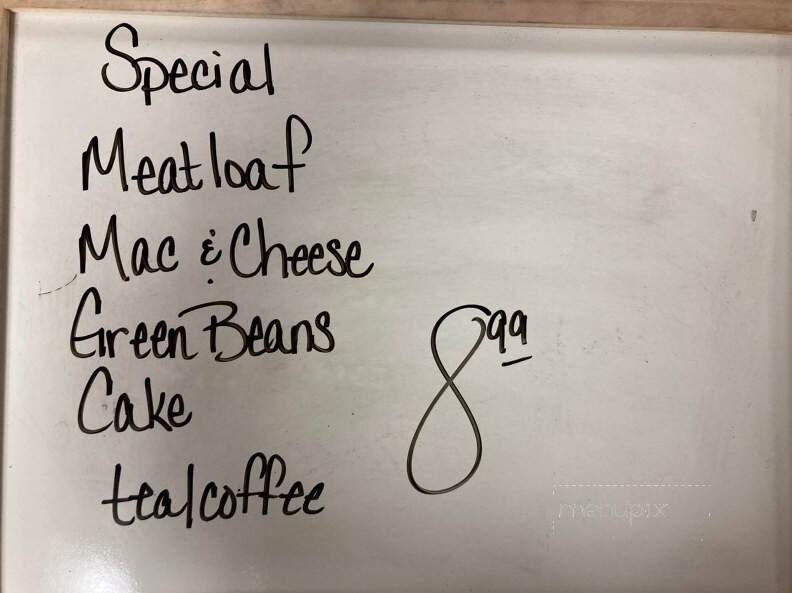 Special
Meatloaf
Mac & Cheese
Green Beans
Cake
tea/coffee
8 99
menupix